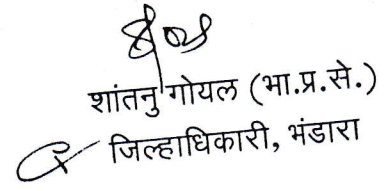 शांतनु गोयल (भा.प्र.से.)
जिल्हाधिकारी, भंडारा